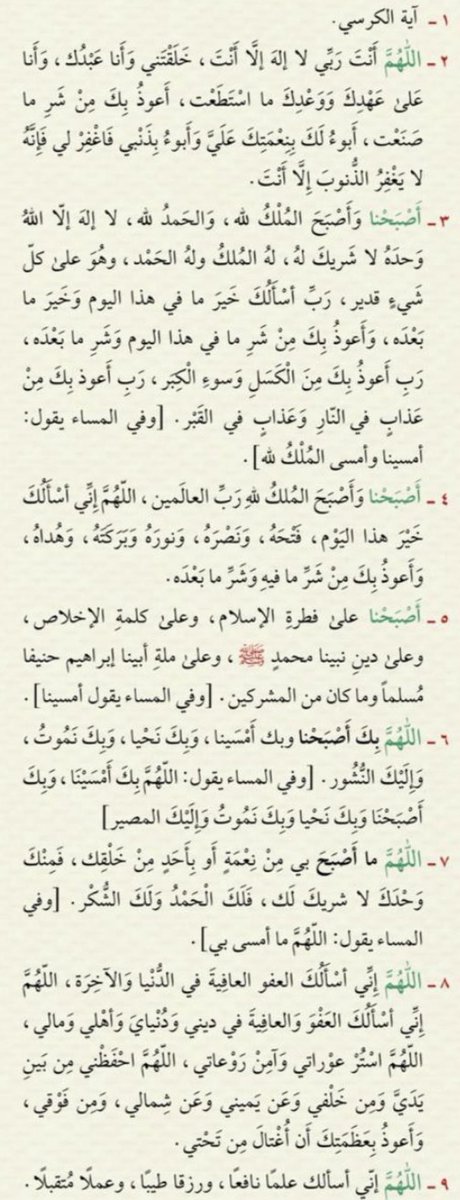 ١ ـ آية الكرسي.
٢ ـ اللّٰهُمَّ أَنْتَ رَبِّي لا إلهَ إلَّا أَنْتَ ، خَلَقْتَني وَأَنا عَبْدُك ، وَأَنا
عَلىٰ عَهْدِكَ وَوَعْدِكَ ما اسْتَطَعْت ، أَعوذُ بِكَ مِنْ شَرِ ما
صَنَعْت ، أَبوءُ لَكَ بِنِعْمَتِكَ عَلَيَّ وَأَبوءُ بِذَنْبي فَاغْفِرْ لي فَإِنَّهُ
لا يَغْفِرُ الذُّنوبَ إِلَّا أَنْتَ.
٣ ـ أَصْبَحْنا وَأَصْبَحَ المُلْكُ لله ، وَالحَمدُ لله ، لا إلهَ إلّا اللهُ
وَحدَهُ لا شَريكَ لهُ ، لهُ المُلكُ ولهُ الحَمْد ، وهُوَ علىٰ كلّ
شَيءٍ قدير ، رَبِّ أسْأَلُكَ خَيرَ ما في هذا اليوم وَخَيرَ ما
بَعْدَه ، وَأَعوذُ بِكَ مِنْ شَرِ ما في هذا اليوم وَشَرِ ما بَعْدَه ،
رَبِ أَعوذُ بِكَ مِنَ الْكَسَلِ وَسوءِ الْكِبَر ، رَبِ أَعوذ بِكَ مِنْ
عَذابٍ في النّارِ وَعَذابٍ في القَبْر . [وفي المساء يقول:
أمسينا وأمسى المُلْكُ لله] .
٤ ـ أَصْبَحْنا وَأَصْبَحَ المُلكُ للهِ رَبِّ العالَمين ، اللّهُمَّ إِنِّي أسْأَلُكَ
خَيْرَ هذا اليَوْم ، فَتْحَهُ ، وَنَصْرَهُ ، وَنورَهُ وَبَرَكَتَهُ ، وَهُداهُ ،
وَأَعوذُ بِكَ مِنْ شَرِّ ما فيهِ وَشَرِّ ما بَعْدَه.
٥ ـ أَصْبَحْنا علىٰ فطرةِ الإسلام ، وعلىٰ كلمةِ الإخلاص ،
وعلىٰ دينِ نبينا محمدٍ ﷺ ، وعلىٰ ملةِ أبينا إبراهيم حنيفا
مُسلماً وما كان من المشركين . [وفي المساء يقول أمسينا] .
٦ ـ اللّٰهُمَّ بِكَ أَصْبَحْنا وبك أَمْسَينا ، وَبِكَ نَحْيا ، وَبِكَ نَمُوتُ ،
وَإِلَيْكَ النُّشُور . [وفي المساء يقول: اللّهُمَّ بِكَ أَمْسَيْنَا ، وَبِكَ
أَصْبَحْنَا وَبِكَ نَحْيا وَبِكَ نَمُوتُ وَإِلَيْكَ المصير]
٧ ـ اللّٰهُمَّ ما أَصْبَحَ بي مِنْ نِعْمَةٍ أَو بِأَحَدٍ مِنْ خَلْقِك ، فَمِنْكَ
وَحْدَكَ لا شريكَ لَك ، فَلَكَ الْحَمْدُ وَلَكَ الشُّكْر . [وفي
المساء يقول: اللّهُمَّ ما أمسى بي] .
٨ ـ اللّٰهُمَّ إِنِّي أسْأَلُكَ العفو العافيةَ في الدُّنْيا وَالآخِرَة ، اللّهُمَّ
إِنِّي أسْأَلُكَ العَفْوَ وَالعافِيةَ في ديني وَدُنْيايَ وَأهْلي وَمالي ،
اللّهُمَّ اسْتُرْ عوْراتي وَآمِنْ رَوْعاتي ، اللّهُمَّ احْفَظْني مِن بَينِ
يَدَيَّ وَمِن خَلْفي وَعَن يَميني وَعَن شِمالي ، وَمِن فَوْقي ،
وَأَعوذُ بِعَظَمَتِكَ أَن أُغْتالَ مِن تَحْتي.
٩ ـ اللّٰهُمَّ إنّي أسألك علمًا نافعًا ، ورزقا طيبًا ، وعملًا مُتقبلًا .